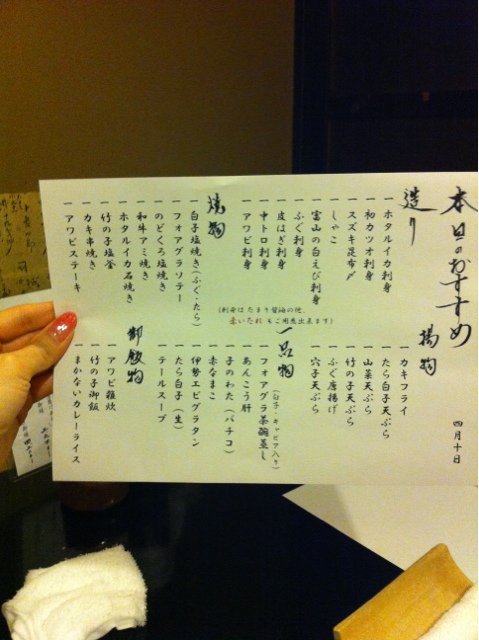 本日のおすすめ
四月十日
造り
一 ホタルイカ刺身
一 初カツオ刺身
一 スズキ昆布〆
一 しゃこ
一 富山の白えび刺身
一 ふぐ刺身
一 皮はぎ刺身
一 中トロ刺身
一 アワビ刺身
(刺身はたまり醤油の他、
赤いたれもご用意出来ます)
焼物
一 白子塩焼き(ふぐ・たら)
一 フォアグラソテー
一 のどくろ塩焼き
一 和牛アミ焼き
一 ホタルイカ石焼き
一 竹の子塩釜
一 カキ串焼き
一 アワビステーキ
揚物
一 カキフライ
一 たら白子天ぷら
一 山菜天ぷら
一 竹の子天ぷら
一 ふぐ唐揚げ
一 穴子天ぷら
一品物
(白子・キャビア入り)
一 フォアグラ茶碗蒸し
一 あんこう肝
一 子のわた(バチコ)
一 赤なまこ
一 伊勢エビグラタン
一 たら白子(生)
一 テールスープ
御飯物
一 アワビ雑炊
一 竹の子御飯
一 まかないカレーライス